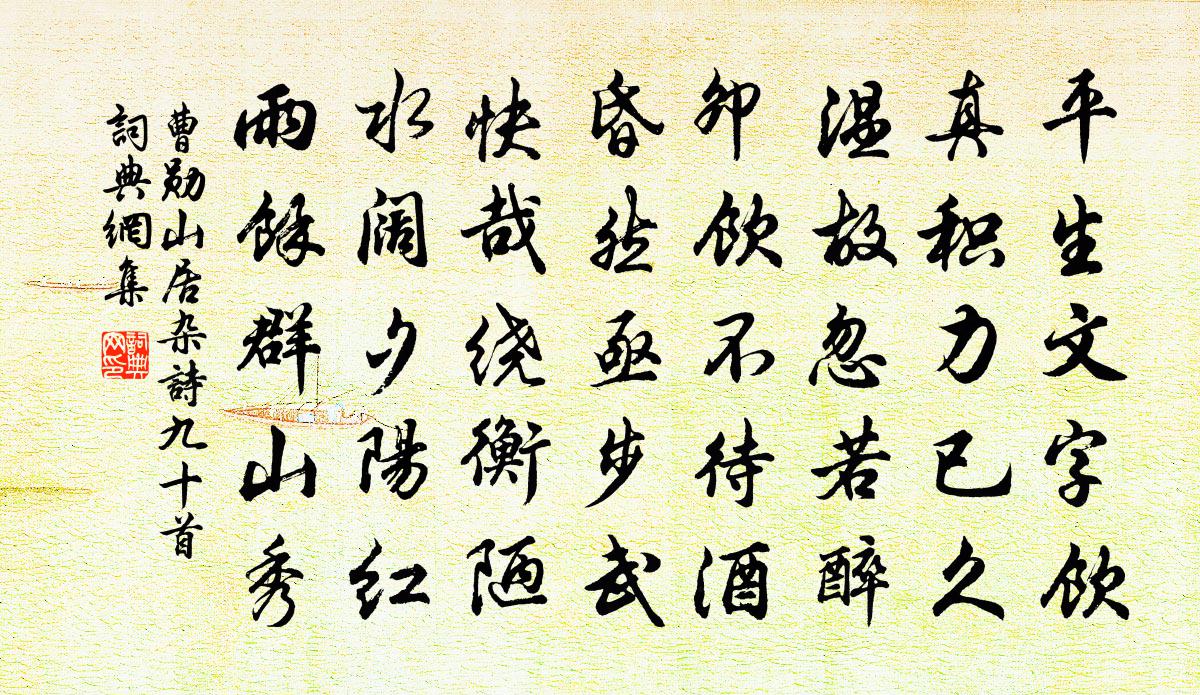 平生文字饮
真积力已久
温故忽若醉
卯饮不待酒
昏然亟步武
快哉绕衡陋
水阔夕陽红
雨馀群山秀
曹勋山居杂詩九十首
詞典網集
詞典
网印